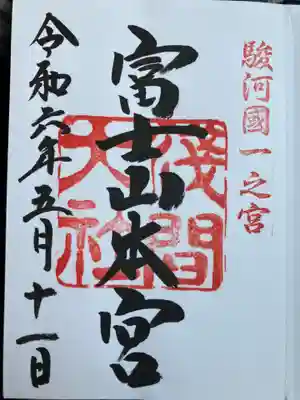 駿河國一之宮
富士山本宮
淺間大社
令和六年五月十一日